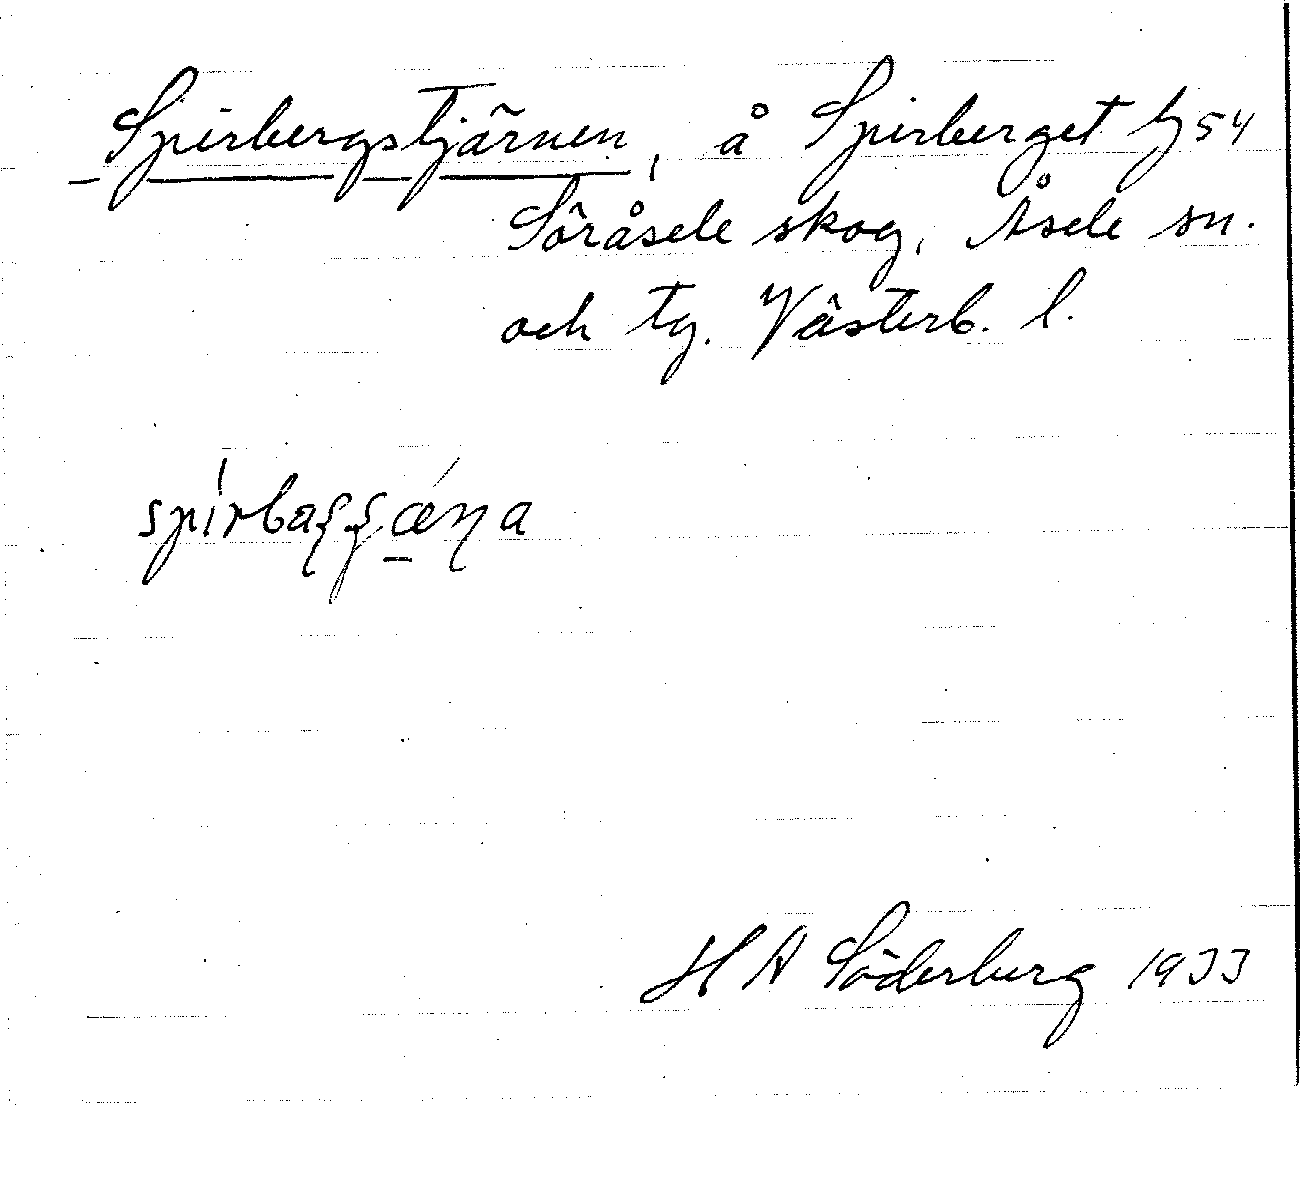 Spirbergstjärnen, å Spirberget h54
Söråsele skog, Åsele sn.
och tg. Västerb. l.
H A Söderberg 1933